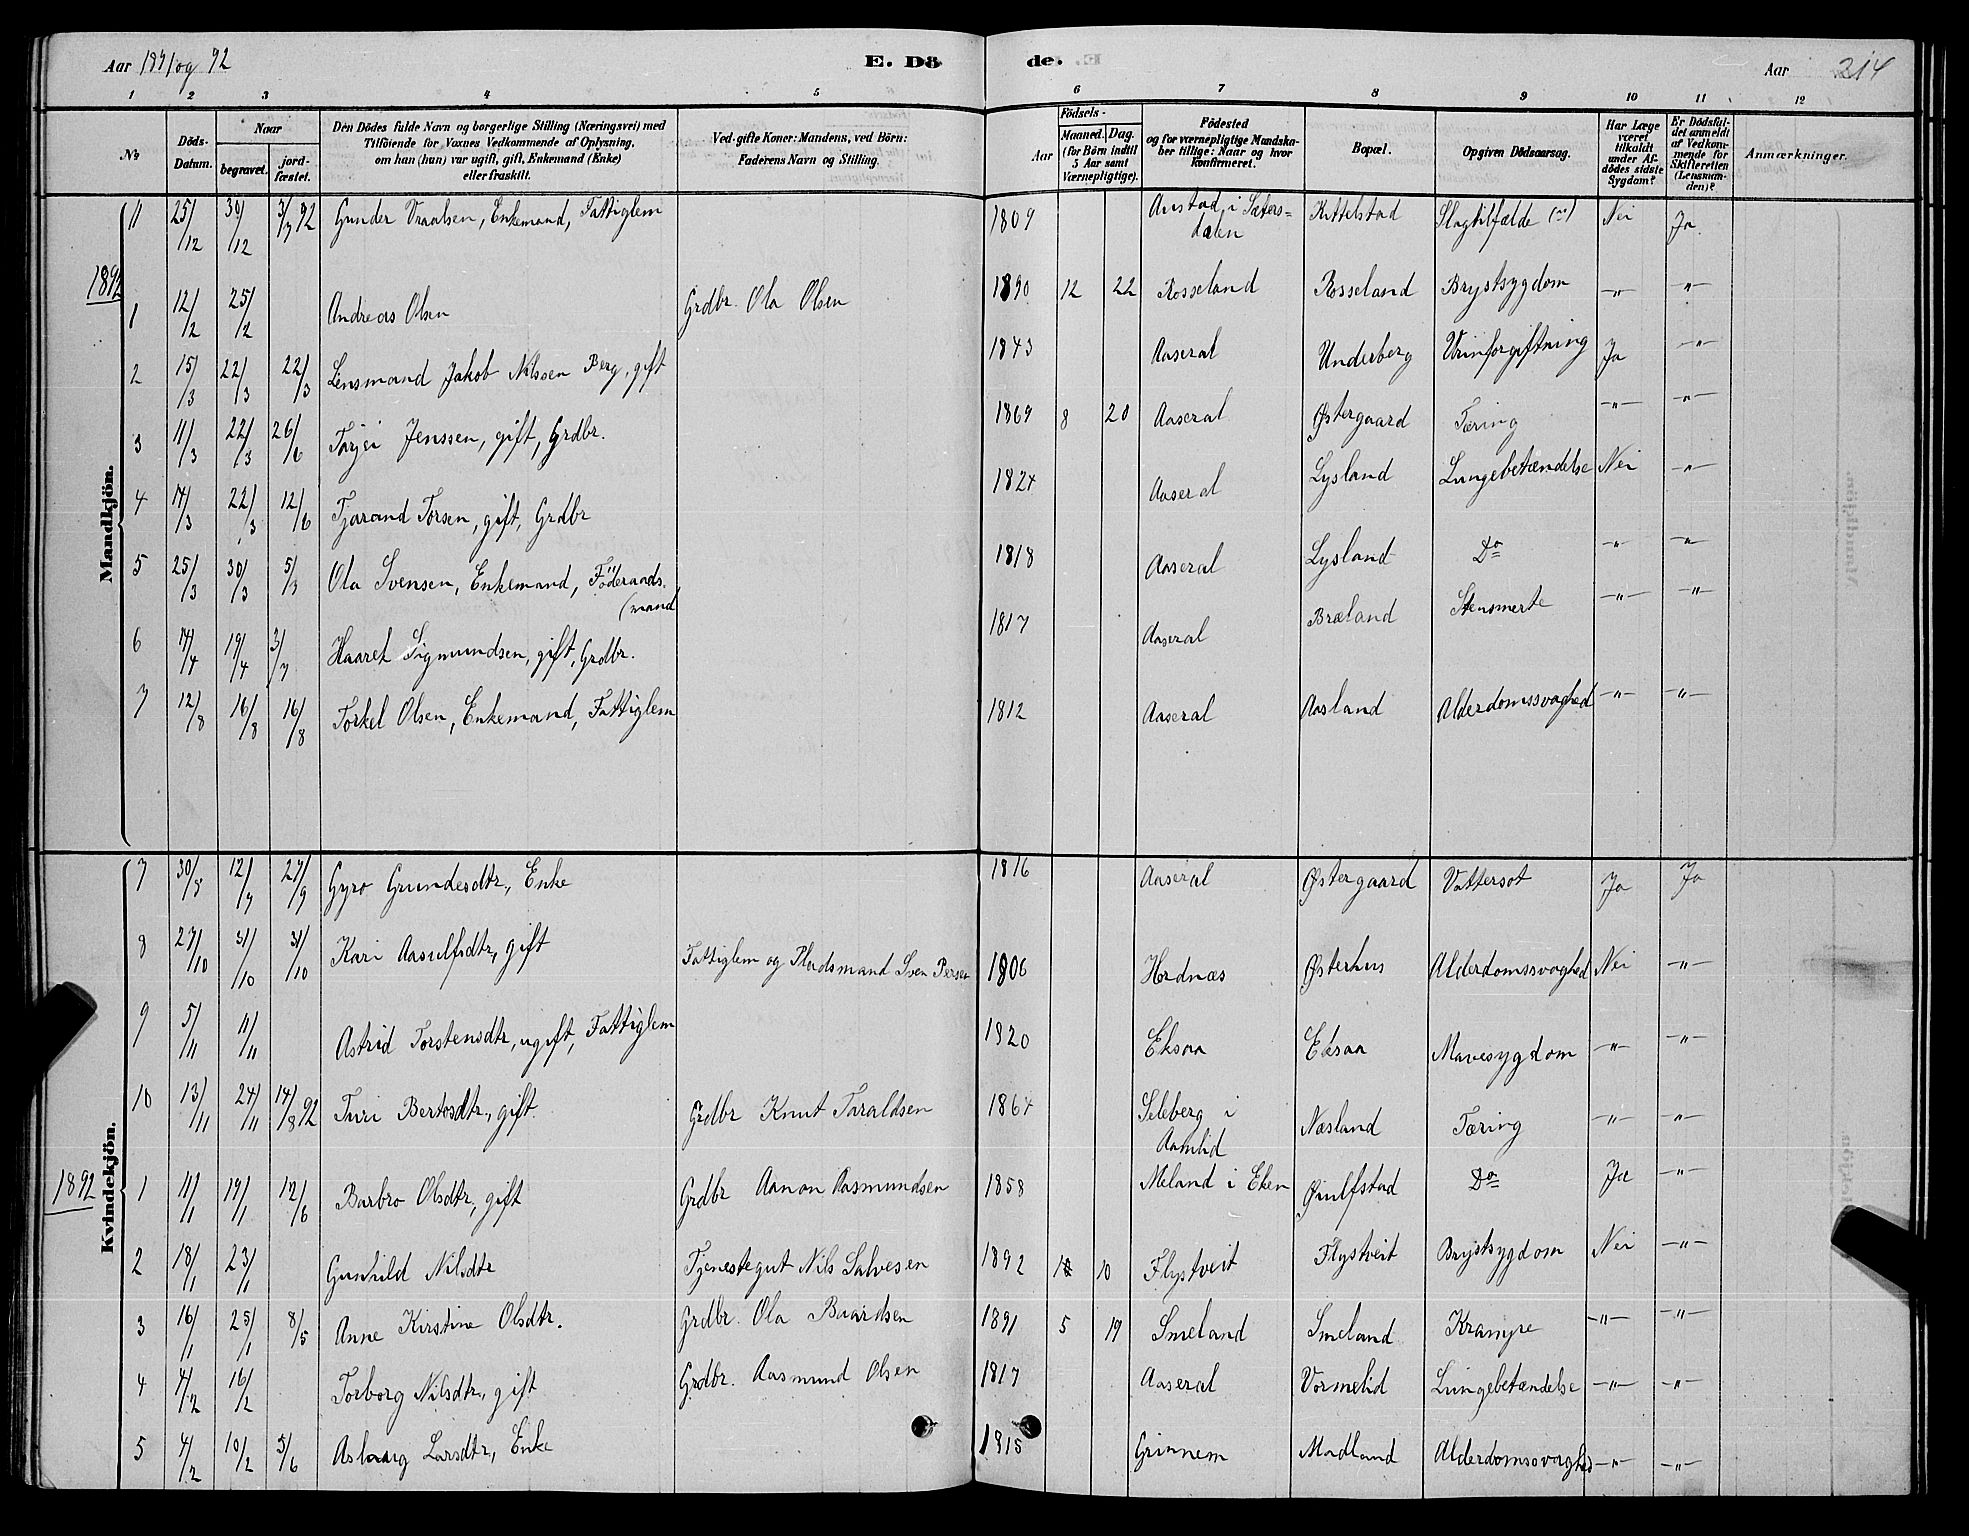 Aar 1891 og 92 E. Dö de. Aar 214
1 2 3 4 5 6 7 8 9 10 11 12
No Döds-Datum. Naar begravet. jord-fæstet. Den Dödes fulde Navn og borgerlige Stilling (Næringsvei) med Tilföiende for Voxnes Vedkommende af Oplysning, om han (hun) var ugift, gift, Enkemand (Enke) eller fraskilt. Ved gifte Koner: Mandens, ved Börn: Faderens Navn og Stilling. Födsels- Aar Maaned. Dag. (for Börn indtil 5 Aar samt Værnepligtige). Födested og for værnepligtige Mandskaber tillige: Naar og hvor Konfirmeret. Bopæl. Opgiven Dödsaarsag. Har Læge været tilkaldt under Afdödes sidste Sygdom? Er Dödsfaldet anmeldt af Vedkommende for Skifteretten (Lensmanden)? Anmærkninger.
Mandkjön.
11 25/12 30/12 3/7 92 Gunder Vraalsen, Enkemand, Fattiglem 1809 Austad i Sætersdalen Kittelstad Slagtilfælde Nei Ja
1892
1 12/2 25/2 Andreas Olsen Grdbr. Ola Olsen 1890 12 22 Rosseland Rosseland Brystsygdom —"— —"—
2 15/3 22/3 22/3 Lensmand Jakob Nilssen Berg, gift 1843 Aaseral Underberg Urinforgiftning Ja —"—
3 11/3 22/3 26/6 Torjei Jenssen, gift, Grdbr. 1869 8 20 Aaseral Østergaard Tæring —"— —"—
4 14/3 22/3 12/6 Tjarand Torsen, gift, Grdbr 1824 Aaseral Lysland Lungebetændelse Nei —"—
5 25/3 30/3 5/3 Ola Svensen, Enkemand, Föderaads-(mand 1818 Aaseral Lysland Do —"— —"—
6 14/4 19/4 3/7 Haaret Sigmundsen, gift, Grdbr. 1817 Aaseral Bræland Stensmerte —"— —"—
7 12/8 16/8 16/8 Torkel Olsen, Enkemand, Fattiglem 1812 Aaseral Aasland Alderdomssvaghed —"— —"—
Kvindekjön.
7 30/8 12/9 27/9 Gyro Gundesdtr, Enke 1816 Aaseral Østergaard Vattersot Ja Ja
8 27/10 31/10 31/10 Kari Aasulfsdtr, gift Fattiglem og Pladsmand Sven Persen 1806 Hordnæs Østerhus Alderdomssvaghed Nei —"—
9 5/11 11/11 Astrid Torstensdtr, ugift, Fattiglem 1820 Eksaa Eksaa Mavesygdom —"— —"—
10 13/11 24/11 14/8 92 Turi Bertosdtr, gift Grdbr Knut Taraldsen 1864 Seleberg i Aamlid Næsland Tæring —"— —"—
1892
1 11/1 19/1 12/6 Barbro Olsdtr, gift Grdbr Aanon Aasmundsen 1858 Meland i Eken Øiulfstad Do Ja —"—
2 18/1 23/1 Gunhild Nilsdtr Tjenestegut Nils Salvesen 1892 1 10 Flystveit Flystveit Brystsygdom Nei —"—
3 16/1 25/1 8/5 Anne Kirstine Olsdtr. Grdbr. Ola Baardsen 1891 5 19 Smeland Smeland Krampe —"— —"—
4 4/2 16/2 Torborg Nilsdtr, gift Grdbr. Aasmund Olsen 1817 Aaseral Vormelid Lungebetændelse —"— —"—
5 4/2 10/2 5/6 Aslaug Larsdtr, Enke 1815 Grinnem Modland Alderdomssvaghed —"— —"—